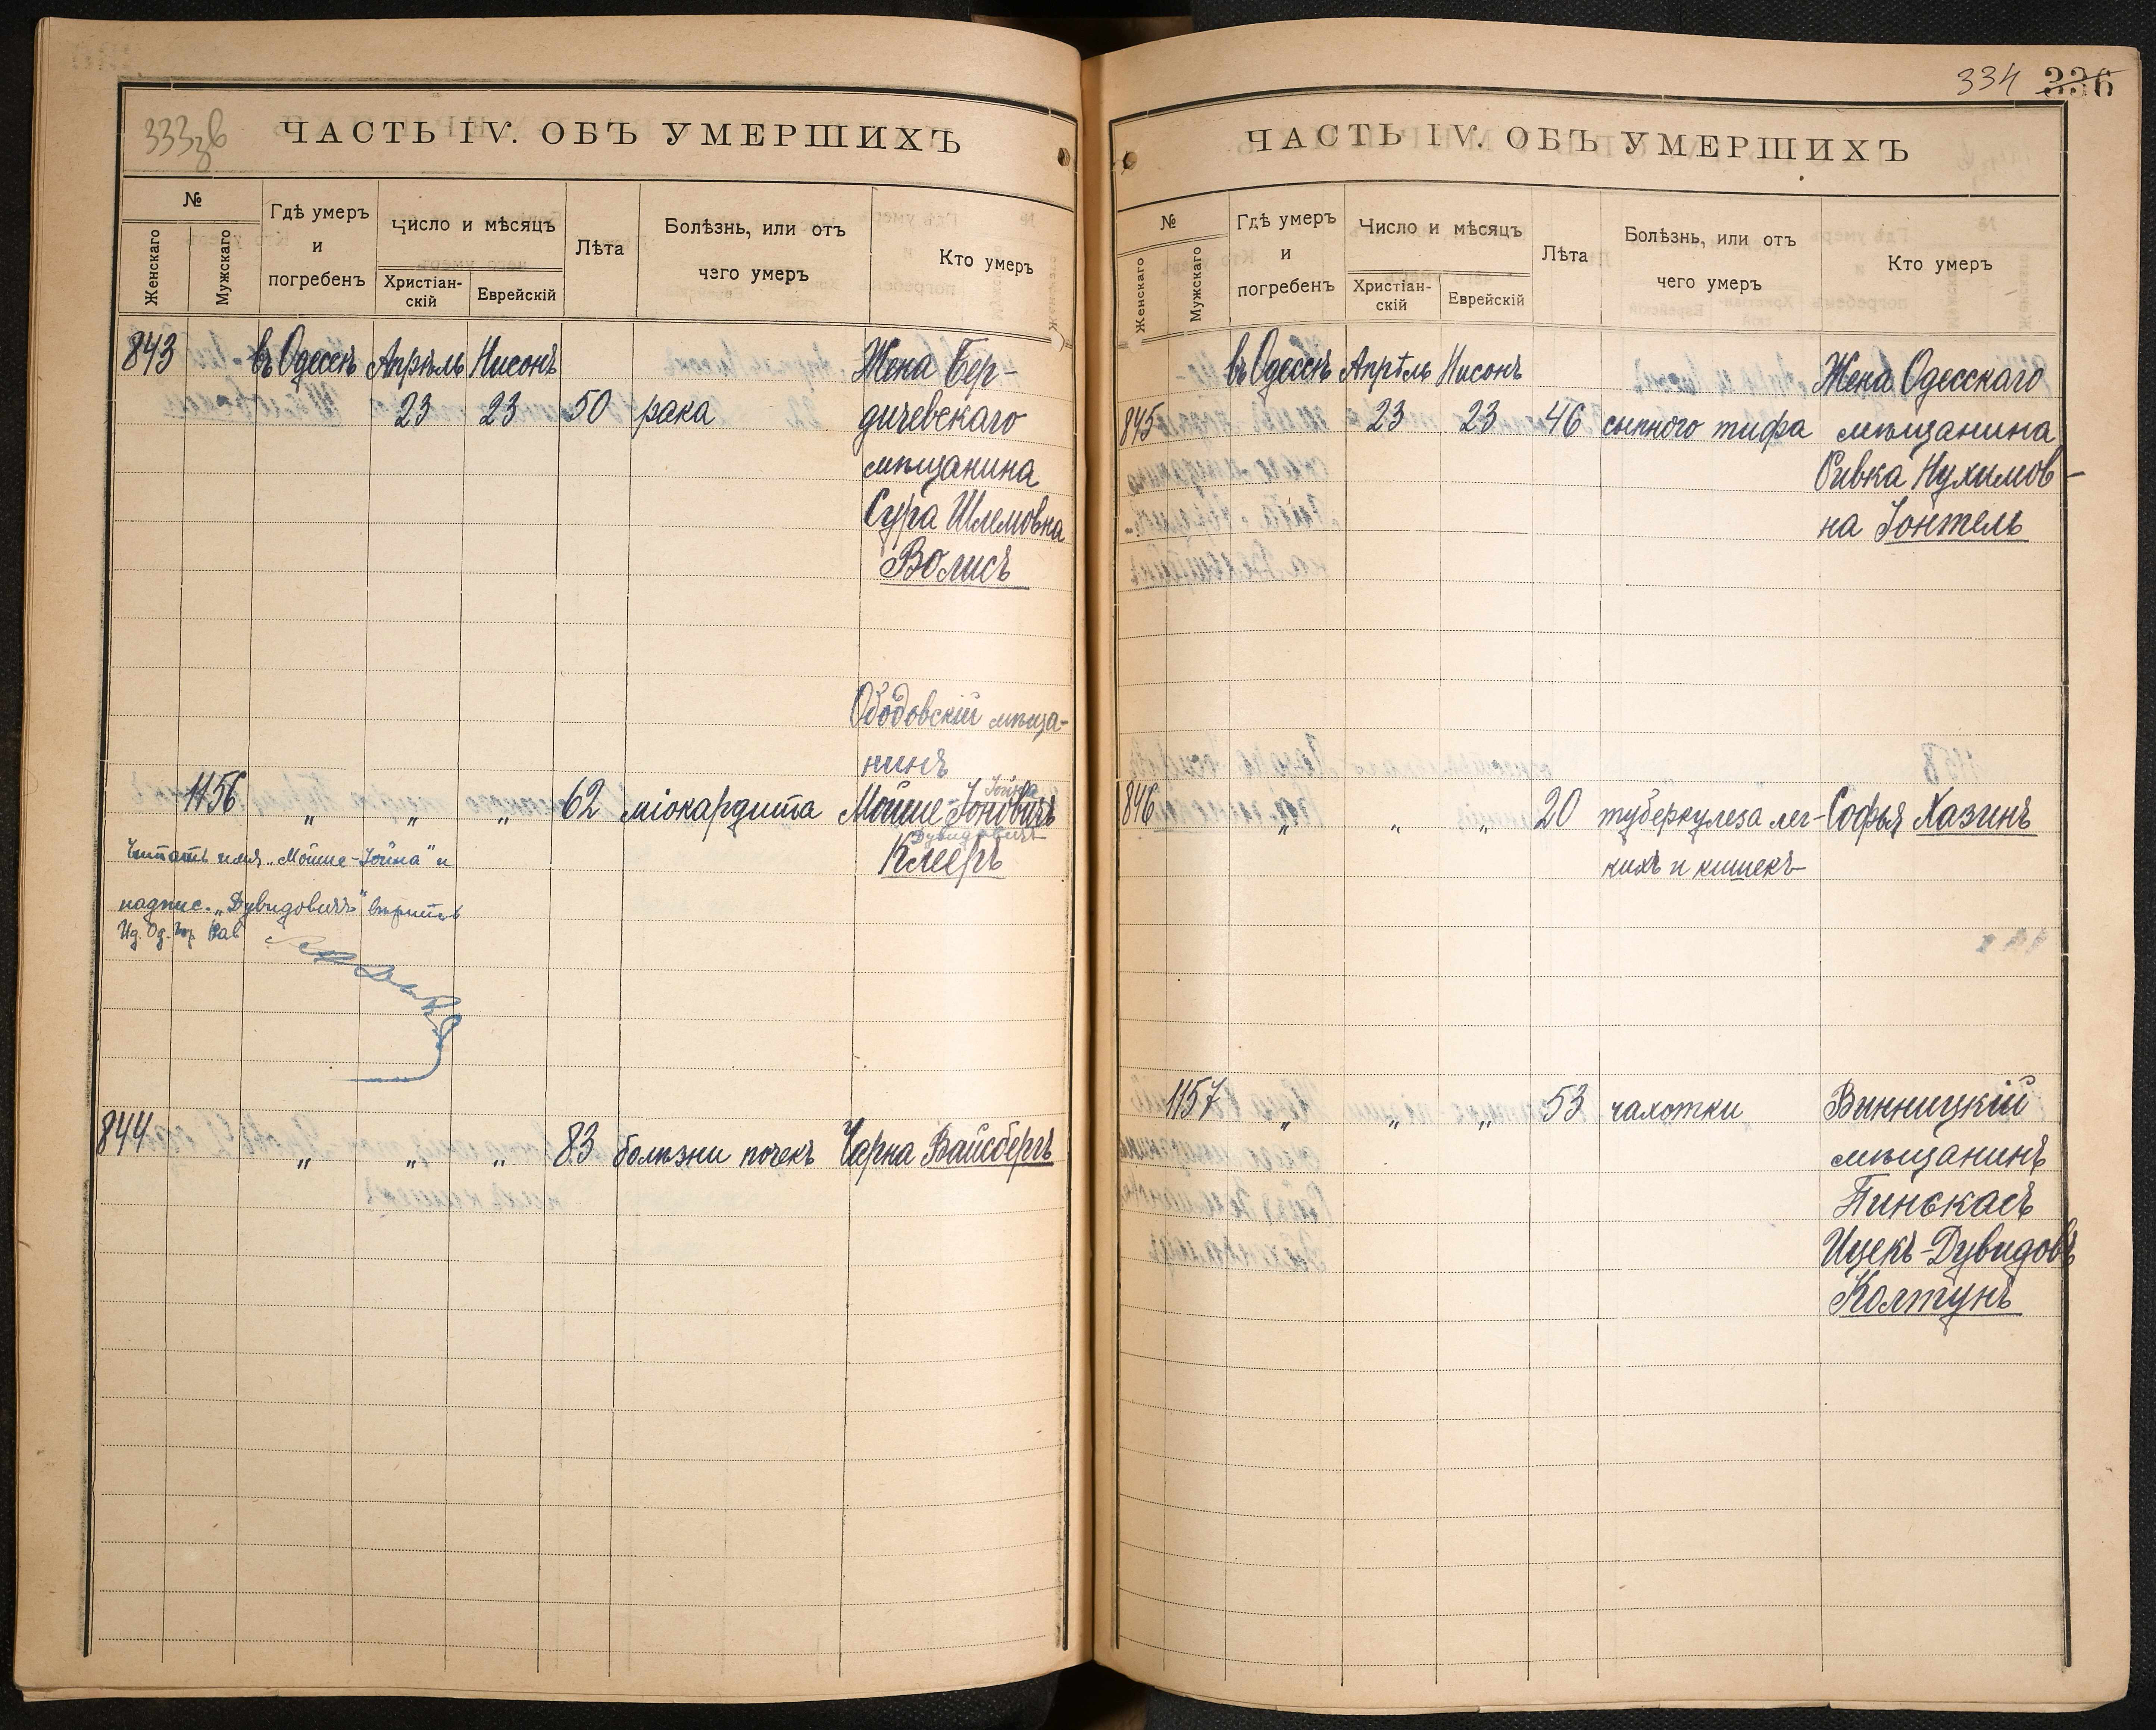 333зв
ЧАСТЬ IV. ОБЪ УМЕРШИХЪ
№
Женскаго
Мужскаго
Гдѣ умеръ
и
погребенъ
Число и мѣсяцъ
Христіан-
скій
Еврейскій
Лѣта
Болѣзнь, или отъ
чего умеръ
Кто умеръ
843 въ Одессѣ Апрѣль Нисонъ Жена Бер-
23 23 50 рака дичевскаго
мѣщанина
Сура Шлемовна
Волисъ
Ободовскій мѣща-
нинъ
Іойна
1156 „ „ „ 62 міокардита Мойше-Іоновичъ
Дувидовичъ
Клееръ
Читать имя „Мойше-Іойна" и
надпис. „Дувидовичъ" вѣрить
Ид. Од. Гор. Рав
844 „ „ „ 83 болѣзни почекъ Чарна Вайсбергъ
334 336
ЧАСТЬ IV. ОБЪ УМЕРШИХЪ
№
Женскаго
Мужскаго
Гдѣ умеръ
и
погребенъ
Число и мѣсяцъ
Христіан-
скій
Еврейскій
Лѣта
Болѣзнь, или отъ
чего умеръ
Кто умеръ
въ Одессѣ Апрѣль Нисонъ Жена Одесскаго
845 23 23 46 сыпного тифа мѣщанина
Сивка Нухимов-
на Іонтель
846 „ „ „ 20 туберкулеза лег- Софья Хазинъ
кихъ и кишекъ
1157 „ „ „ 53 чахотки Винницкій
мѣщанинъ
Пинскасъ
Ицекъ-Дувидовъ
Колтунъ